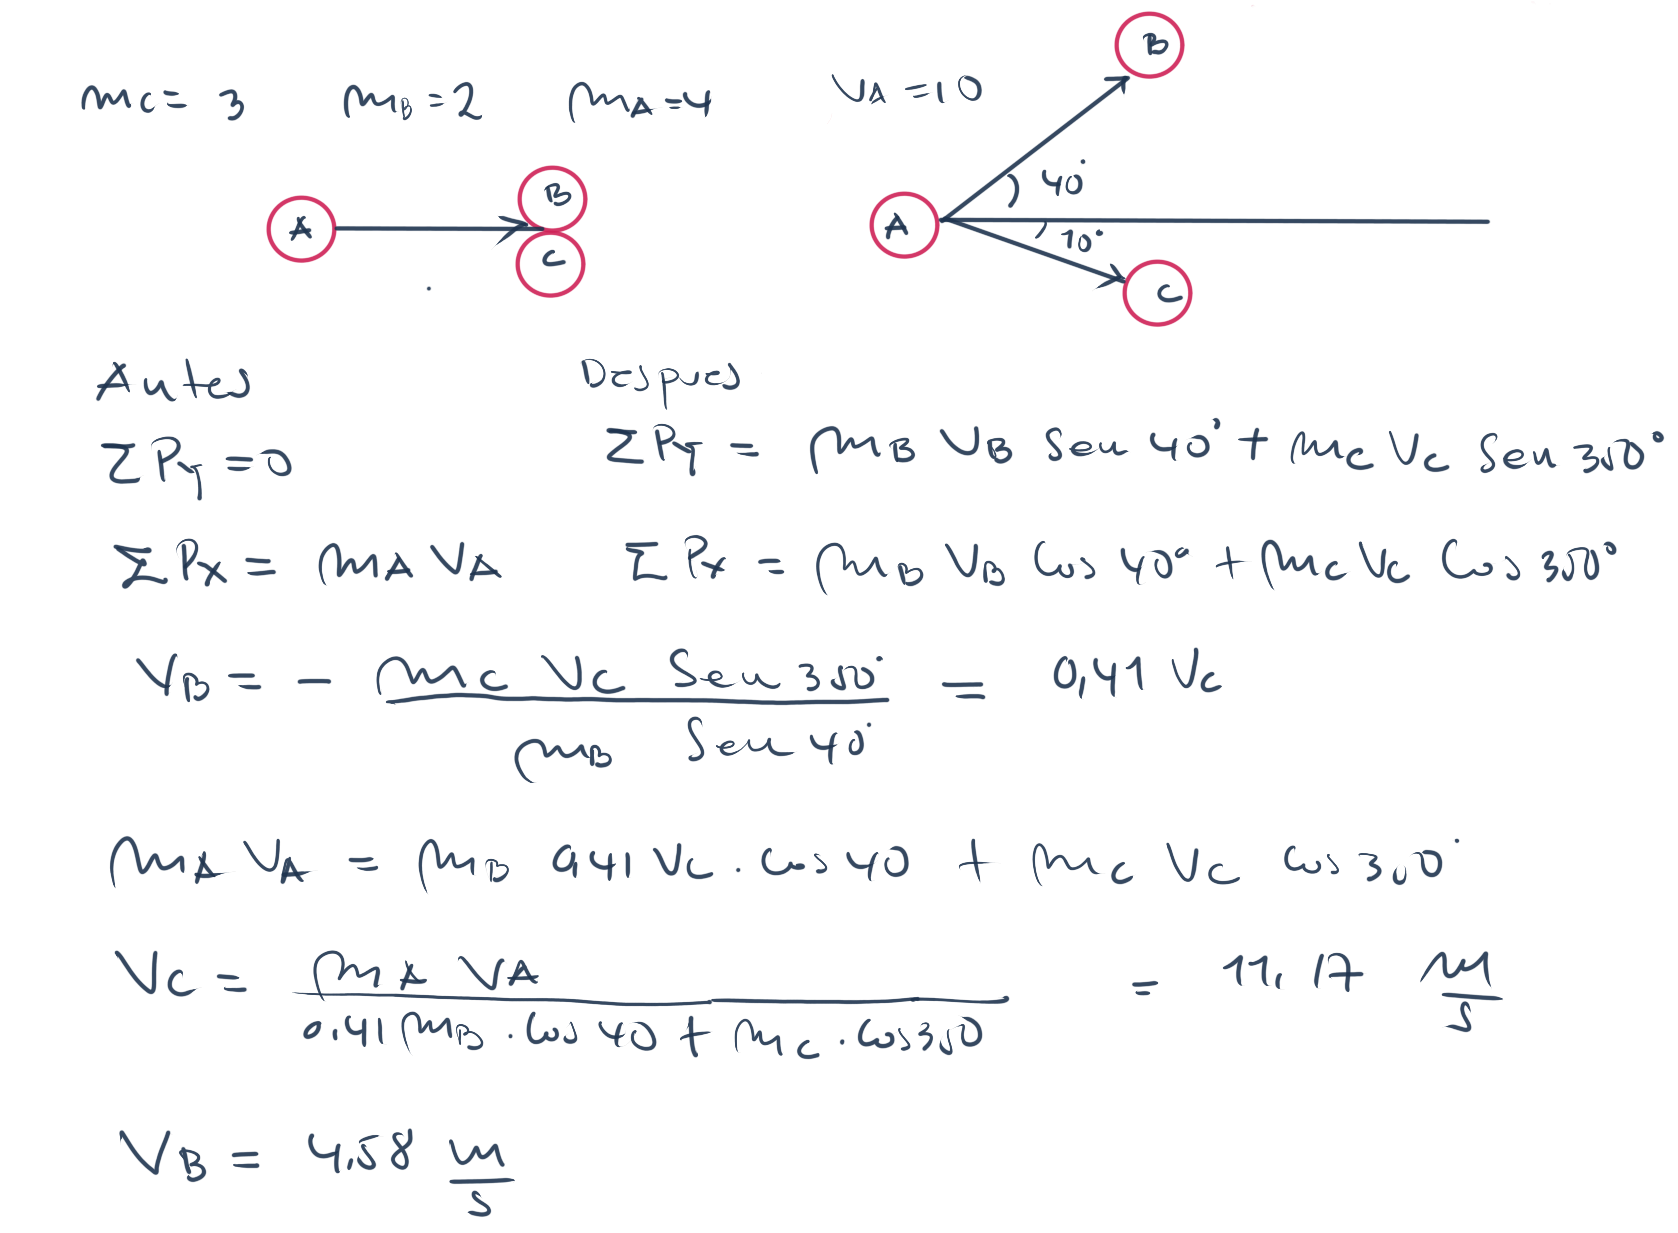 mc = 3 mB = 2 mA = 4 VA = 10
B
40°
A B C
A 10° C
Antes Despues
ΣPy = 0 ΣPy = mB VB Sen 40° + mc Vc Sen 350°
ΣPx = mA VA ΣPx = mB VB Cos 40° + mc Vc Cos 350°
VB = - mc Vc Sen 350° / mB Sen 40° = 0,41 Vc
mA VA = mB 0,41 Vc . Cos 40 + mc Vc Cos 350°
Vc = mA VA / 0.41 mB . Cos 40 + mc . Cos 350 = 11.17 m/s
VB = 4.58 m/s